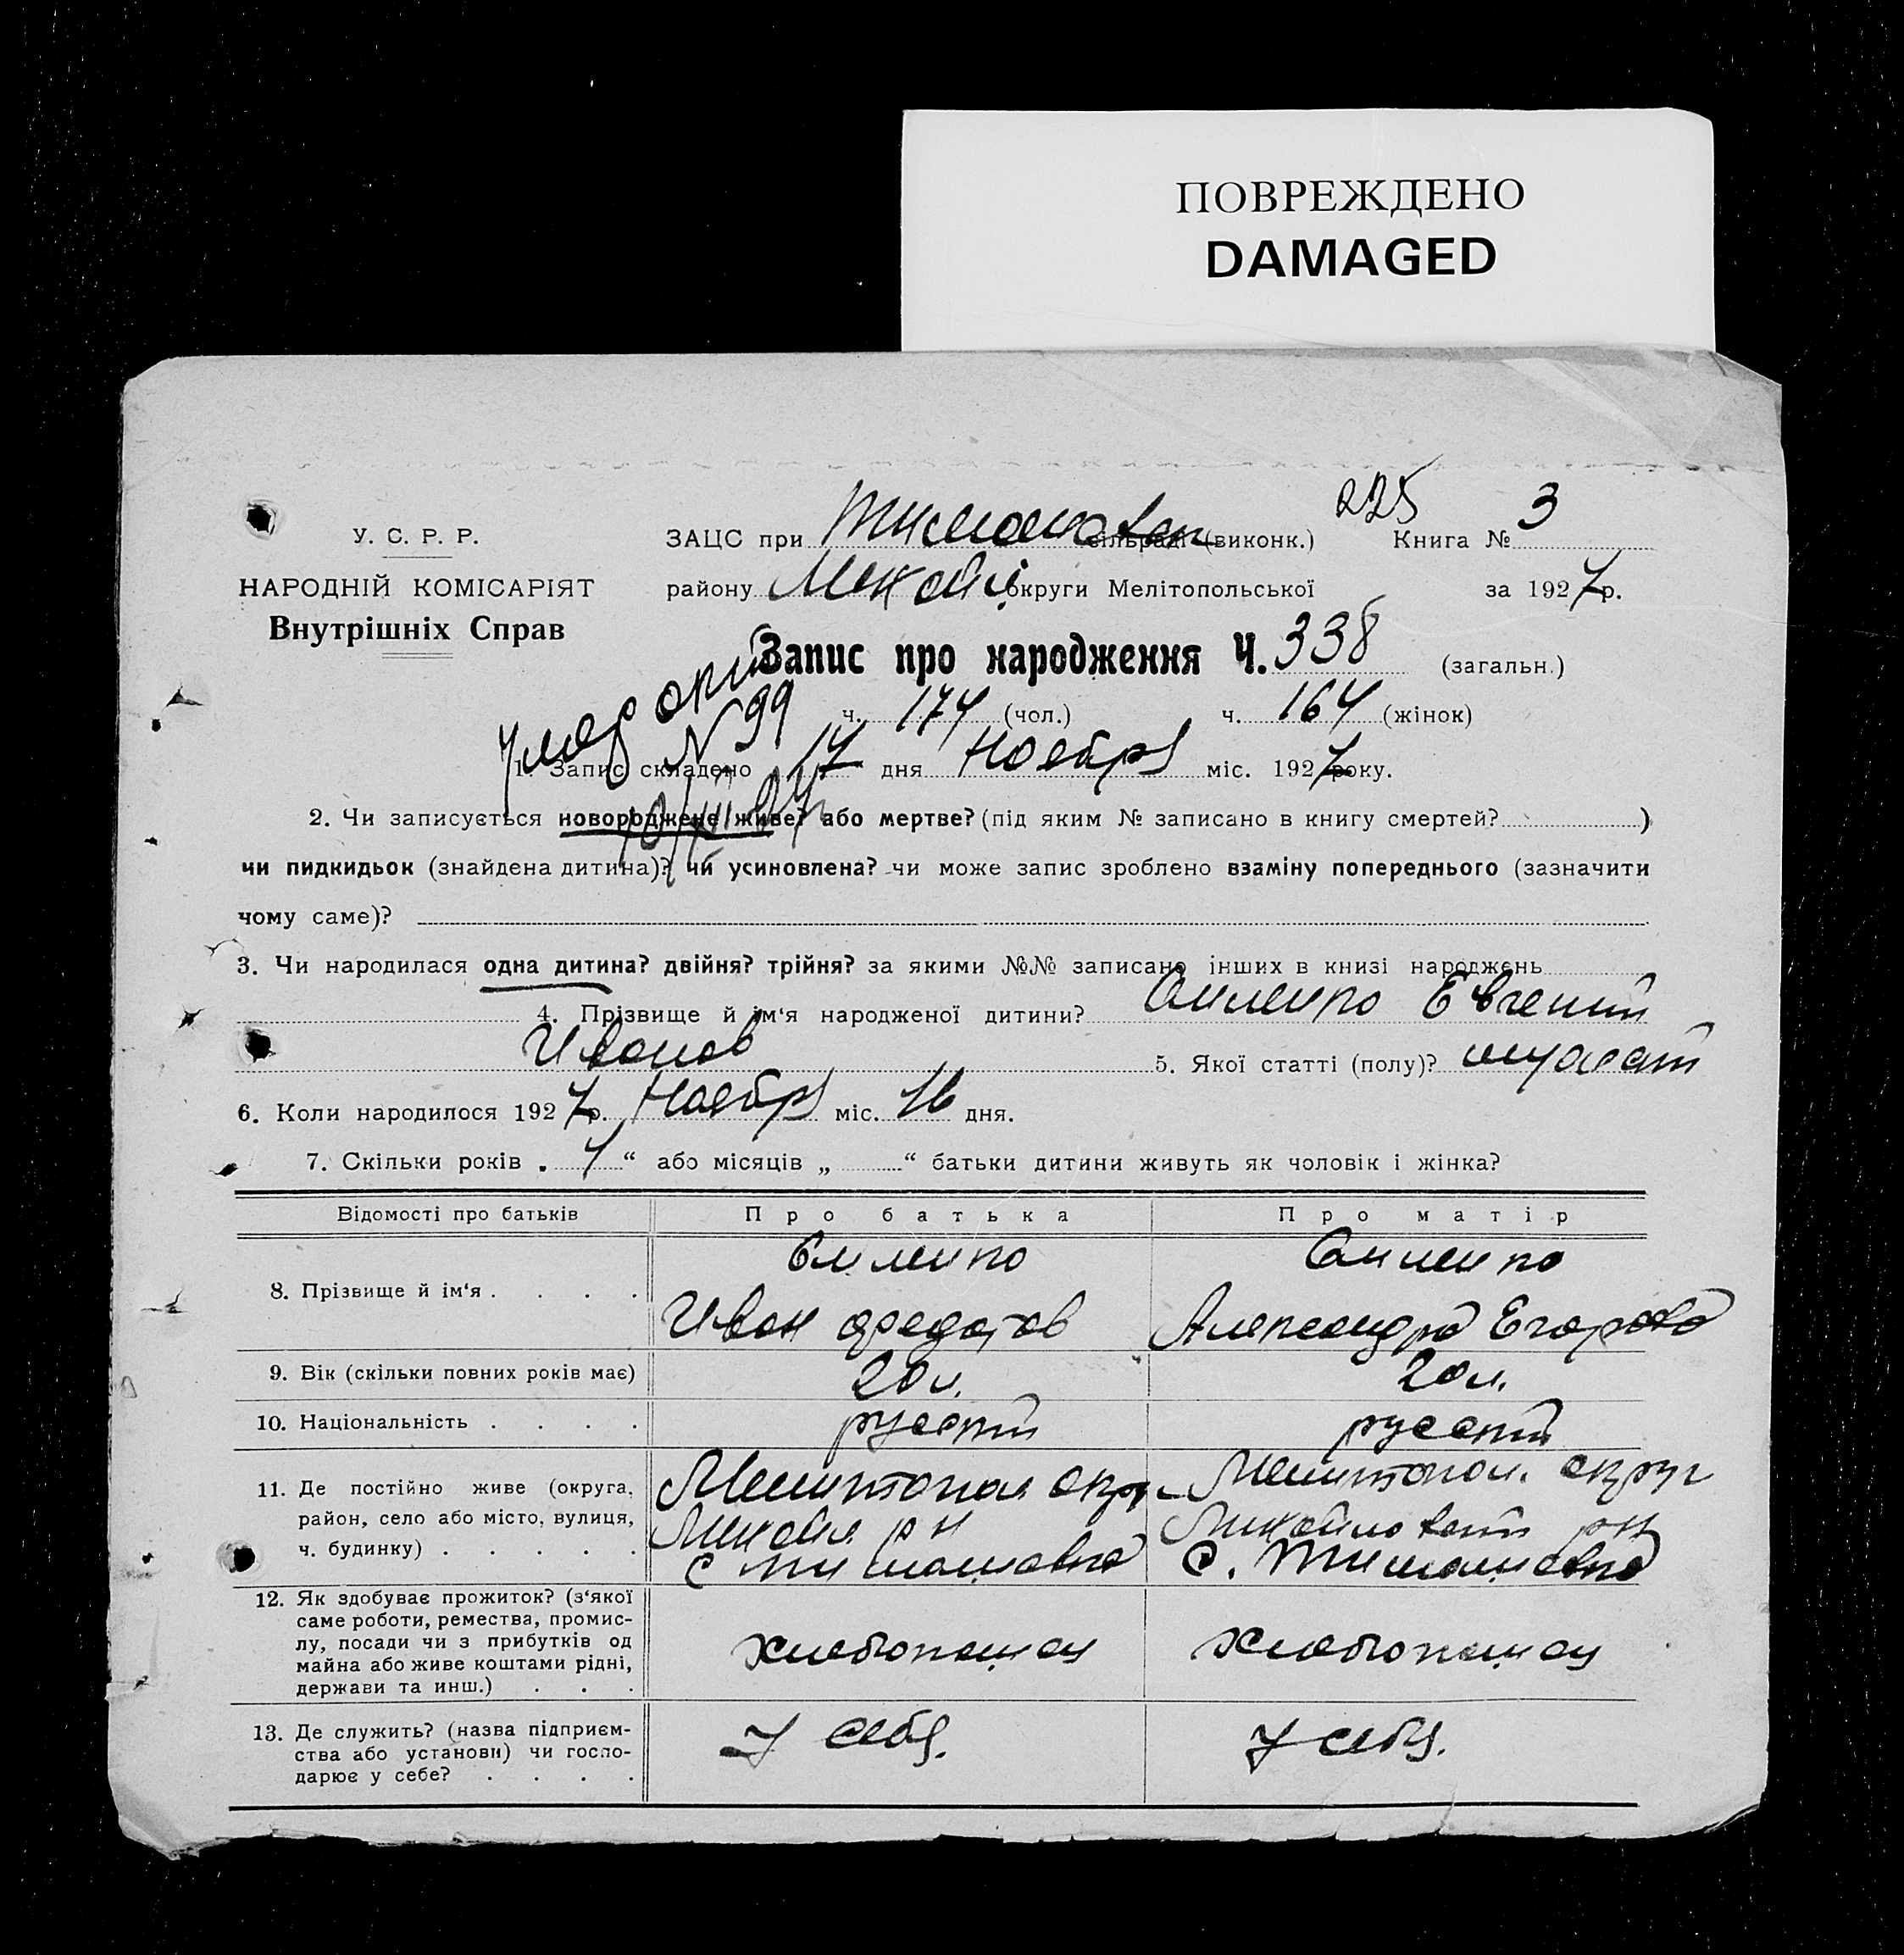 ПОВРЕЖДЕНО
DAMAGED
225
У. С. Р. Р.
НАРОДНІЙ КОМІСАРІЯТ
Внутрішніх Справ
ЗАЦС при сільраді (виконк.) Книга № 3
району Михайл округи Мелітопольської за 1927 р.
Запис про народження Ч. 338 (загальн.)
ч. 174 (чол.) ч. 164 (жінок)
N 99
1. Запис складено 17 дня Ноября міс. 1927 року.
2. Чи записується новороджене живе? або мертве? (під яким № записано в книгу смертей? )
чи пидкидьок (знайдена дитина)? чи усиновлена? чи може запис зроблено взаміну попереднього (зазначити
чому саме)?
3. Чи народилася одна дитина? двійня? трійня? за якими №№ записано інших в книзі народжень
4. Прізвище й ім'я народженої дитини? Евгений
Иванов 5. Якої статті (полу)?
6. Коли народилося 1927 р. Ноября міс. 16 дня.
7. Скільки років „ “ або місяців „ “ батьки дитини живуть як чоловік і жінка?
Відомості про батьків Про батька Про матір
8. Прізвище й ім'я . . . .
Иван Федотов Александра Егорова
9. Вік (скільки повних років має) 20 л. 20 л.
10. Національність . . . . русский русский
11. Де постійно живе (округа, район, село або місто, вулиця, ч. будинку) . . . . .
Мелитопол окру Мелитопол. округ
Михайл. р н Михайловский рн
с Тимашовка с. Тимашовка
12. Як здобуває прожиток? (з'якої
саме роботи, ремества, промис-
лу, посади чи з прибутків од
майна або живе коштами рідні,
держави та инш.) . . .
хлебопашец хлебопашец
13. Де служить? (назва підприєм-
ства або установи) чи госпо-
дарює у себе? . . . .
У себя. У себя.